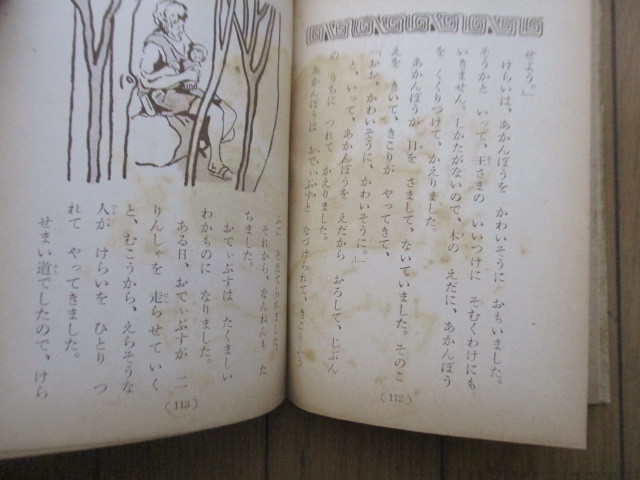 せよう。」
けらいは、あかんぼうを かわいそうに おもいました。
そうかと いって、王さまの いいつけに そむくわけにも
いきません。しかたがないので、木の えだに、あかんぼう
を くくりつけて、かえりました。
あかんぼうが 目を さまして、ないていました。そのこ
えを きいて、きこりが やってきて、
「おお、かわいそうに、かわいそうに。」
と、いって、あかんぼうを えだから おろして、じぶん
の うちに つれて かえりました。
あかんぼうは おでぃぷすと なづけられて、きこりふう
(112)
ふに そだてられました。
それから、なんねんも た
ちました。
おでぃぷすは たくましい
わかものに なりました。
ある日、おでぃぷすが 二
りんしゃを 走らせて いく
と、むこうから、えらそうな
人が けらいを ひとり つ
れて やってきました。
せまい道でしたので、けら
(113)